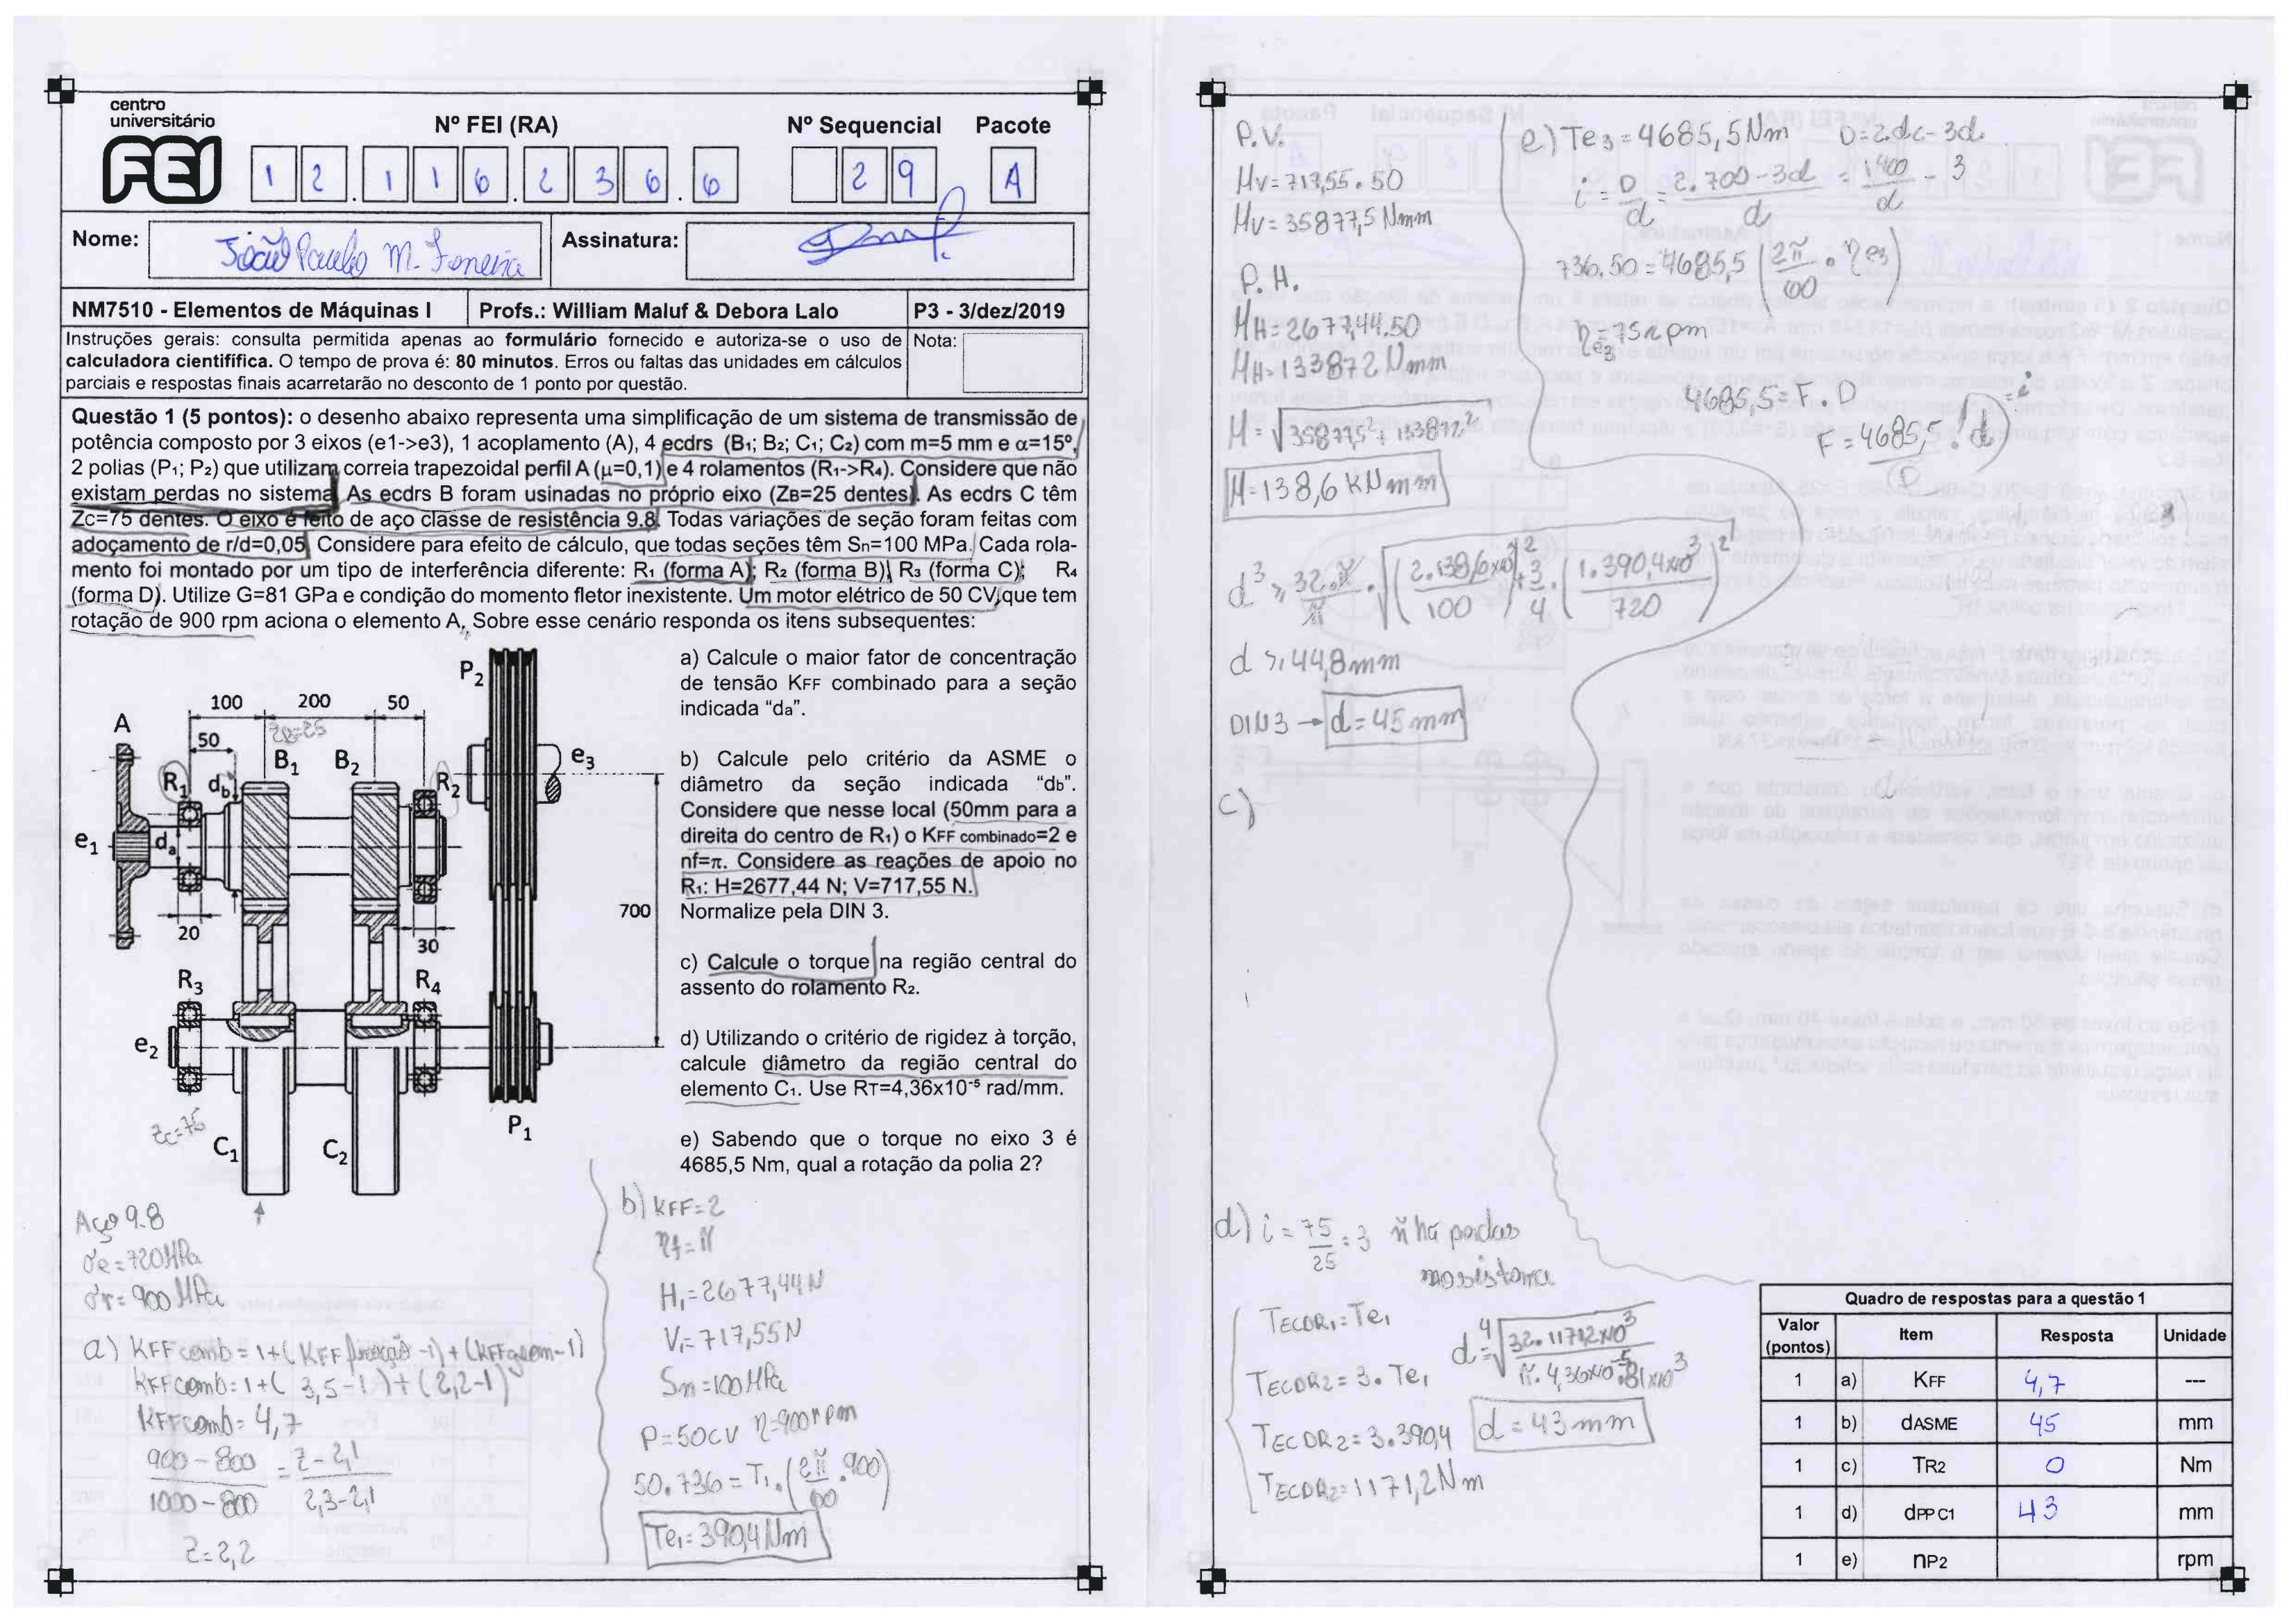 centro
universitário
FEI
Nº FEI (RA)
Nº Sequencial
Pacote
12.116.236.6
29
A
Nome:
João Paulo M. Fonseca
Assinatura:
NM7510 - Elementos de Máquinas I
Profs.: William Maluf & Debora Lalo
P3 - 3/dez/2019
Instruções gerais: consulta permitida apenas ao formulário fornecido e autoriza-se o uso de
calculadora cientifífica. O tempo de prova é: 80 minutos. Erros ou faltas das unidades em cálculos
parciais e respostas finais acarretarão no desconto de 1 ponto por questão.
Nota:
Questão 1 (5 pontos): o desenho abaixo representa uma simplificação de um sistema de transmissão de
potência composto por 3 eixos (e1->e3), 1 acoplamento (A), 4 ecdrs (B1; B2; C1; C2) com m=5 mm e α=15º,
2 polias (P1; P2) que utilizam correia trapezoidal perfil A (μ=0,1) e 4 rolamentos (R1->R4). Considere que não
existam perdas no sistema. As ecdrs B foram usinadas no próprio eixo (ZB=25 dentes). As ecdrs C têm
Zc=75 dentes. O eixo é feito de aço classe de resistência 9.8. Todas variações de seção foram feitas com
adoçamento de r/d=0,05. Considere para efeito de cálculo, que todas seções têm Sn=100 MPa. Cada rola-
mento foi montado por um tipo de interferência diferente: R1 (forma A); R2 (forma B); R3 (forma C); R4
(forma D). Utilize G=81 GPa e condição do momento fletor inexistente. Um motor elétrico de 50 CV, que tem
rotação de 900 rpm aciona o elemento A. Sobre esse cenário responda os itens subsequentes:
a) Calcule o maior fator de concentração
de tensão KFF combinado para a seção
indicada “da”.
b) Calcule pelo critério da ASME o
diâmetro da seção indicada “db”.
Considere que nesse local (50mm para a
direita do centro de R1) o KFF combinado=2 e
nf=π. Considere as reações de apoio no
R1: H=2677,44 N; V=717,55 N.
Normalize pela DIN 3.
c) Calcule o torque na região central do
assento do rolamento R2.
d) Utilizando o critério de rigidez à torção,
calcule diâmetro da região central do
elemento C1. Use RT=4,36x10-5 rad/mm.
e) Sabendo que o torque no eixo 3 é
4685,5 Nm, qual a rotação da polia 2?
P2
100 200 50
A
ZB=25
50
B1 B2
e3
R1 db R2
e1 da
700
20
30
R3 R4
e2
Zc=75
C1 C2
P1
Aço 9.8
σe=720MPa
σr=900MPa
a) KFFcomb=1+(KFFfixação-1)+(KFFgeom-1)
KFFcomb=1+(3,5-1)+(2,2-1)
KFFcomb=4,7
900-800 / 1000-800 = Z-2,1 / 2,3-2,1
Z=2,2
b) KFF=2
nf=π
H1=2677,44N
V1=717,55N
Sn=100MPa
P=50CV n=900rpm
50.736=T1.(2π/60.900)
Te1=390,4Nm
P.V.
Mv=717,55.50
Mv=35877,5 Nmm
P.H.
MH=2677,44.50
MH=133872 Nmm
M=√35877,5²+133872²
M=138,6 kNmm
d³≥32.π/π.√(2.138,6x10³/100)²+3/4.(1.390,4x10³/720)²
d≥44,8mm
DIN3→d=45mm
c)
d) i=75/25=3 ñ há perdas
no sistema
TECDR1=Te1
TECDR2=3.Te1
TECDR2=3.390,4
TECDR2=1171,2Nm
d=⁴√32.1171,2x10³/π.4,36x10-5.81x10³
d=43mm
e) Te3=4685,5Nm D=2.dc-3d
i=D/d=2.700-3d/d=1400/d-3
736.50=4685,5(2π/60.ne3)
ne3=75rpm
4685,5=F.D
F=4685,5.d/D=i
Quadro de respostas para a questão 1
Valor (pontos) Item Resposta Unidade
1 a) KFF 4,7 ---
1 b) dASME 45 mm
1 c) TR2 0 Nm
1 d) dPP C1 43 mm
1 e) nP2 rpm